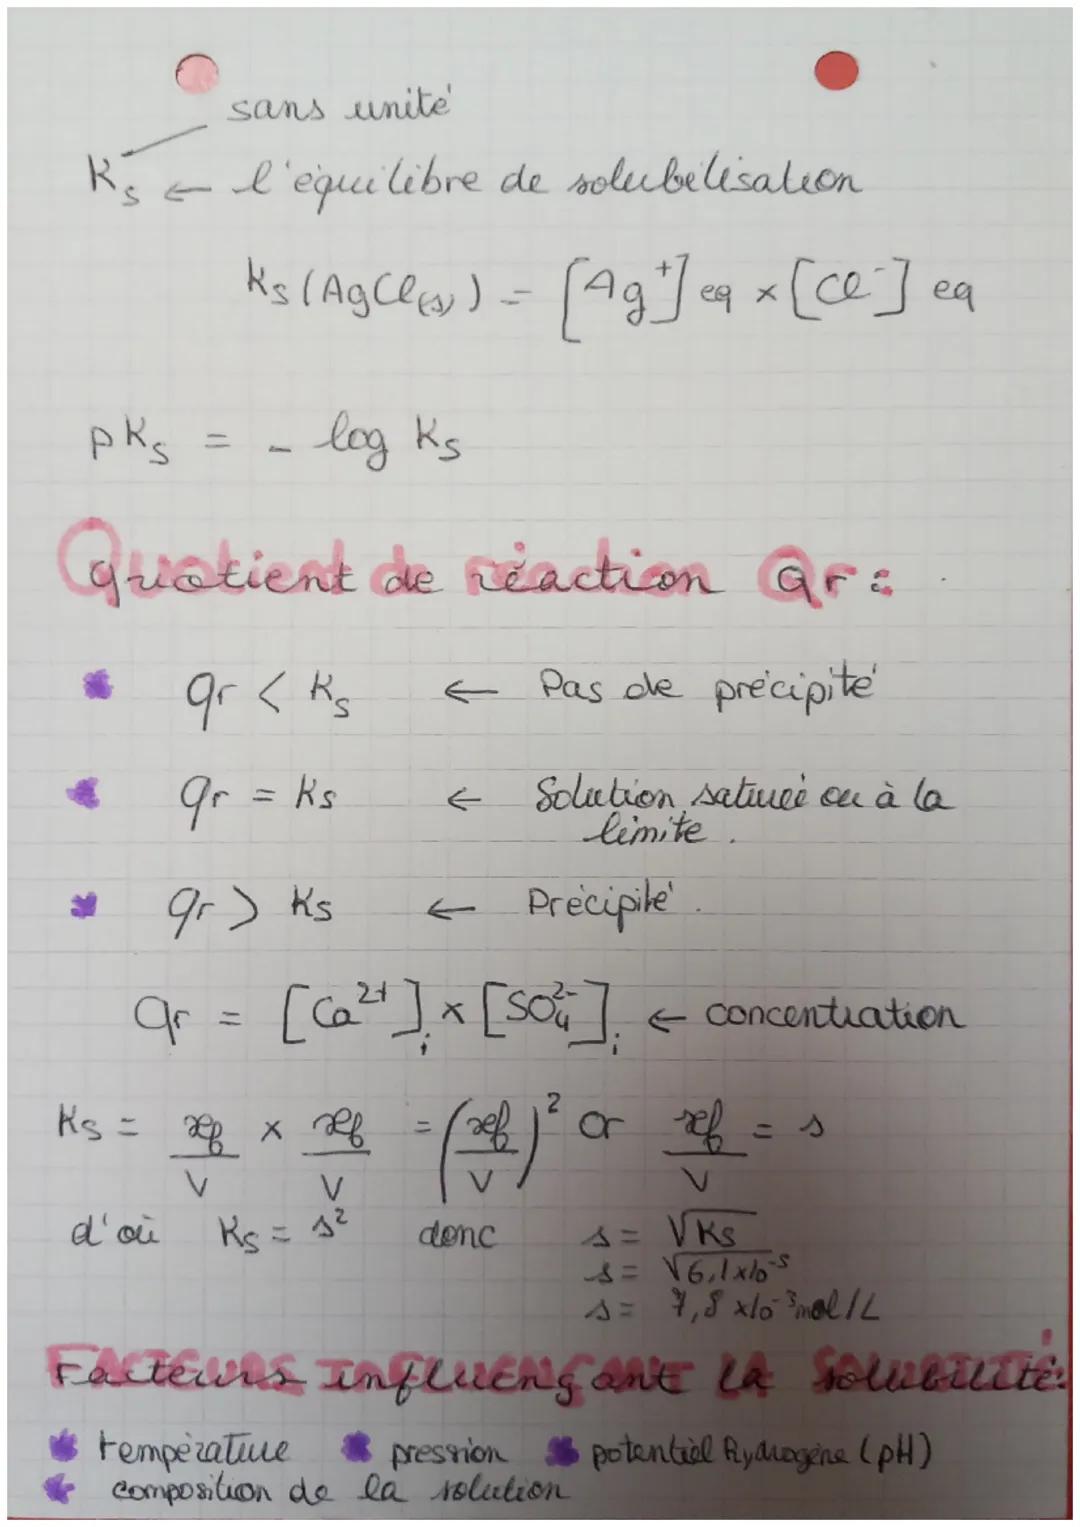 sans unité
Ks ← l'équilibre de solubilisation
Ks (AgCl(s)) = [Ag⁺]eq × [Cl⁻]eq
pKs = - log Ks
Quotient de réaction Qr :
qr < Ks ← Pas de précipité
qr = Ks ← Solution saturée ou à la
limite.
qr > Ks ← Précipité.
Qr = [Ca²⁺]i × [SO₄²⁻]i ← concentration
Ks = xef/V × xef/V = (xef/V)² or xef/V = s
d'où Ks = s² donc s = √Ks
s = √6,1 x10⁻⁵
s = 7,8 x10⁻³ mol/L
Facteurs influençant la solubilité:
température pression potentiel Hydrogène (pH)
composition de la solution